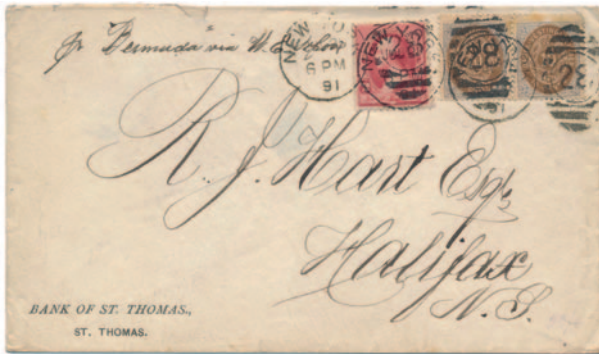 pr Bermuda via
NEW YO
6 PM
91
NEW Y
28
28
91
R. J. Hart Esqr
Halifax
N. S.
BANK OF ST. THOMAS.,
ST. THOMAS.